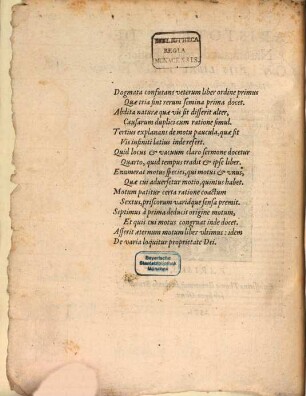 BIBLIOTHECA
REGIA
MONACENSIS.
Dogmata confutans veterum liber ordine primus
Quæ tria sint rerum semina prima docet.
Abdita naturæ quæ vis sit disserit alter,
Causarum duplici cum ratione simul.
Tertius explanans de motu paucula, quæ sit
Vis infiniti latius inde refert.
Quid locus & vacuum claro sermone docetur
Quarto, quod tempus tradit & ipse liber.
Enumerat motus species, qui motus & vnus,
Quæ cui aduersetur motio, quintus habet.
Motum partitur certa ratione coactum
Sextus, priscorum variáque sensa premit.
Septimus à prima deducit origine motum,
Et quis cui motus congruat inde docet.
Asserit æternum motum liber vltimus: idem
De varia loquitur proprietate Dei.
Bayerische
Staatsbibliothek
München